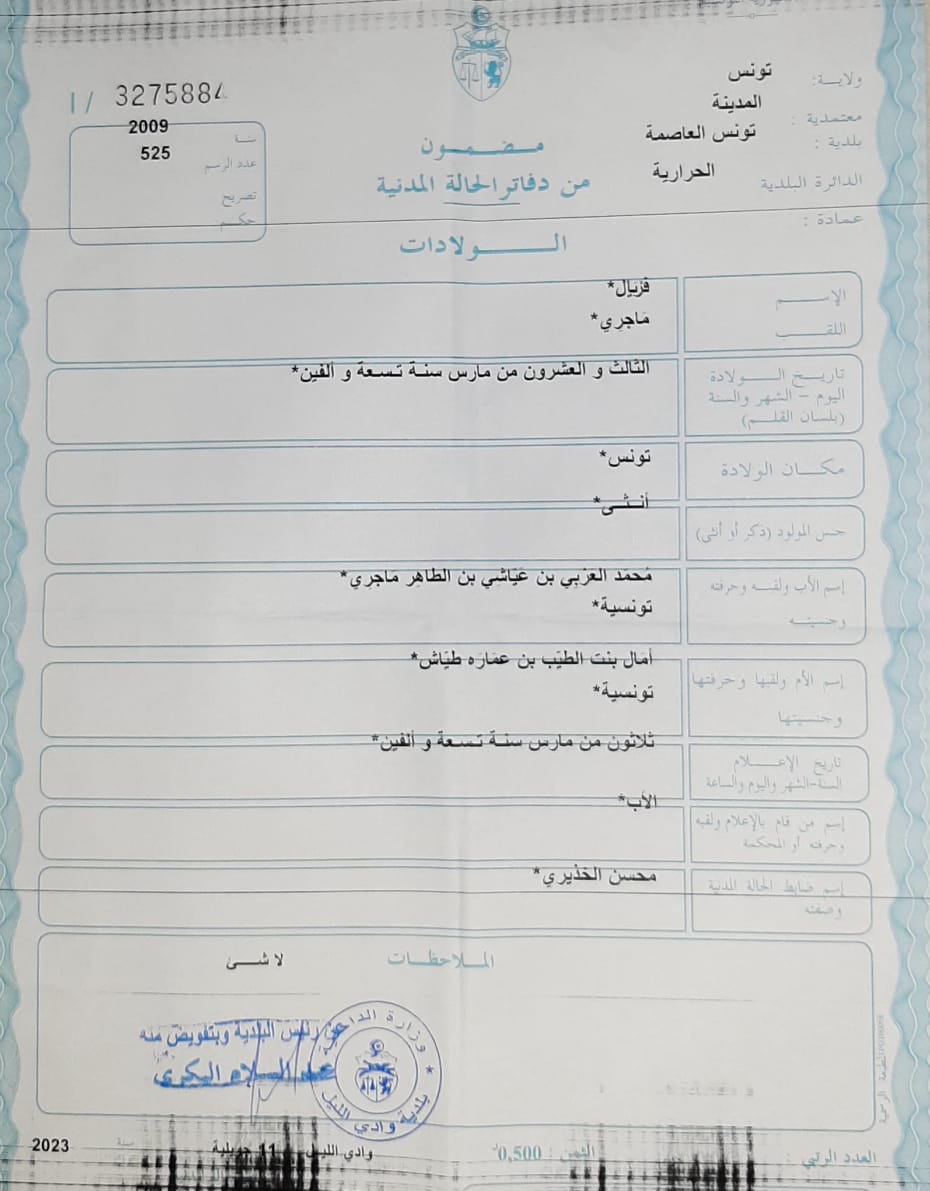 1/ 3275884
سنة 2009
عدد الرسم 525
تصريح
حكم
ولاية: تونس
معتمدية : المدينة
بلدية : تونس العاصمة
الدائرة البلدية الحرارية
عمادة :
مضمون
من دفاتر الحالة المدنية
الولادات
الإسم فريال*
اللقب مَاجري*
تاريخ الولادة
اليوم - الشهر والسنة
(بلسان القلم)
الثالث و العشرون من مارس سنة تسعة و ألفين*
مكان الولادة تونس*
جنس المولود (ذكر أو أنثى) أنثى*
إسم الأب ولقبه وحرفته
وجنسيته
مُحمّد العَرْبي بن عَيّاشي بن الطاهِر مَاجري*
تونسية*
إسم الأم ولقبها وحرفتها
وجنسيتها
أمَال بنت الطيّب بن عمَارَه طيّاش*
تونسية*
تاريخ الإعلام
السنة-الشهر واليوم والساعة
ثلاثون من مارس سنة تسعة و ألفين*
إسم من قام بالإعلام ولقبه
وحرفته أو المحكمة
الأب*
إسم ضابط الحالة المدنية
وصفته
محسن الخذيري*
الملاحظات
لا شئ
عن رئيس البلدية وبتفويض منه
عبد السلام البكري
وزارة الداخلية
بلدية وادي الليل
العدد الرتبي :
الثمن : 0,500د
وادي الليل 11 جويلية سنة 2023